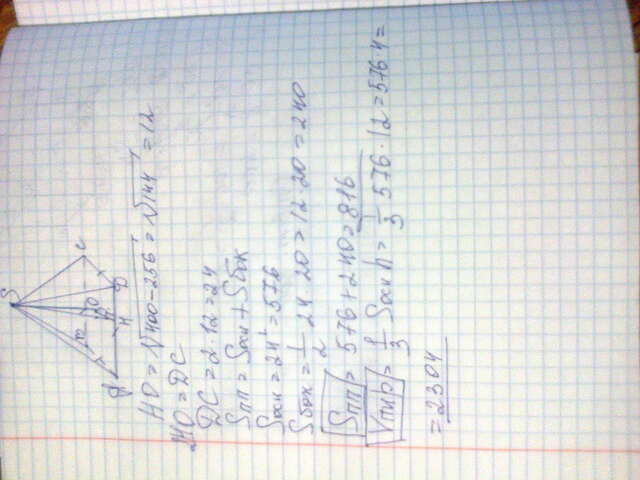 S
B C
O
A H D
HO = √400-256 = √144 = 12
2HO = DC
DC = 2·12 = 24
Sпп = Sосн + Sбок
Sосн = 24² = 576
Sбок = 1/2 24·20 = 12·20 = 240
Sпп = 576 + 240 = 816
Vпир = 1/3 Sосн h = 1/3 576·12 = 576·4 =
= 2304